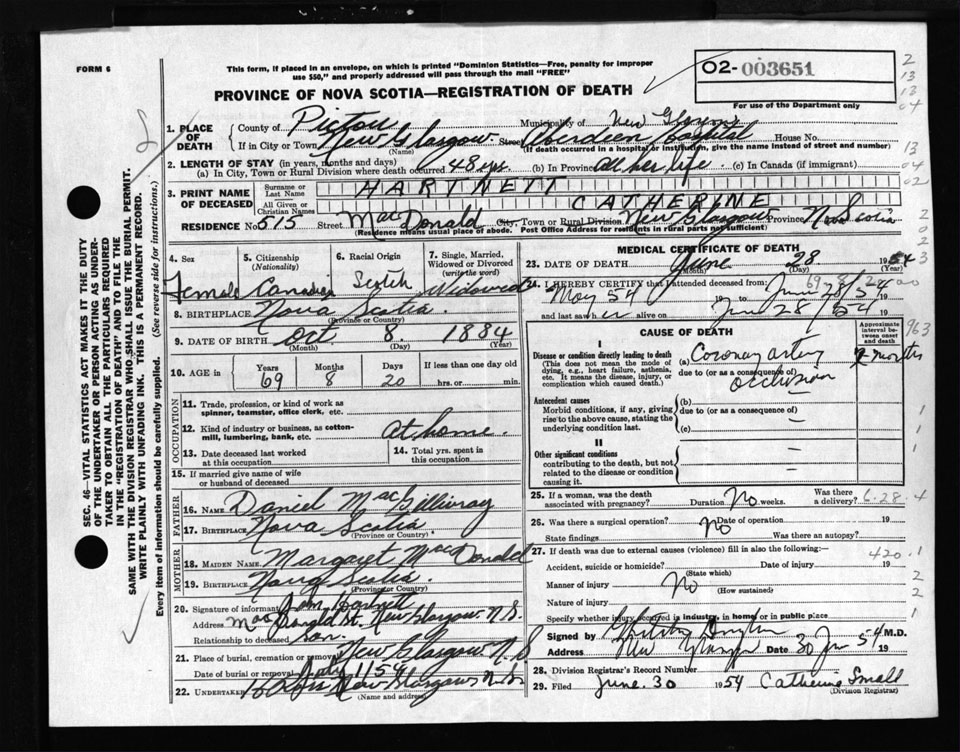 FORM 6
This form, if placed in an envelope, on which is printed "Dominion Statistics—Free, penalty for improper
use $50," and properly addressed will pass through the mail "FREE"
O2-003651
For use of the Department only
PROVINCE OF NOVA SCOTIA—REGISTRATION OF DEATH
1. PLACE OF DEATH County of Pictou Municipality of New Glasgow
If in City or Town New Glasgow (Name) Street Aberdeen Hospital House No.
(If death occurred in a hospital or institution, give the name instead of street and number)
2. LENGTH OF STAY (in years, months and days)
(a) In City, Town or Rural Division where death occurred 48 yrs. (b) In Province all her life (c) In Canada (if immigrant)
3. PRINT NAME OF DECEASED Surname or Last Name HARTNETT
All Given or Christian Names CATHERINE
RESIDENCE No. 515 Street MacDonald City, Town or Rural Division New Glasgow Province N. Scotia
(Residence means usual place of abode. Post Office Address for residents in rural parts not sufficient)
4. Sex Female
5. Citizenship (Nationality) Canadian
6. Racial Origin Scotch
7. Single, Married, Widowed or Divorced (write the word) Widowed
8. BIRTHPLACE Nova Scotia. (Province or Country)
9. DATE OF BIRTH Oct (Month) 8. (Day) 1884 (Year)
10. AGE in Years 69 Months 8 Days 20 If less than one day old hrs. or min.
OCCUPATION
11. Trade, profession, or kind of work as spinner, teamster, office clerk, etc.
12. Kind of industry or business, as cotton-mill, lumbering, bank, etc. At home.
13. Date deceased last worked at this occupation
14. Total yrs. spent in this occupation
15. If married give name of wife or husband of deceased
FATHER
16. NAME Daniel MacGillivray
17. BIRTHPLACE Nova Scotia (Province or Country)
MOTHER
18. MAIDEN NAME Margaret MacDonald
19. BIRTHPLACE Nova Scotia. (Province or Country)
20. Signature of informant
Address MacDonald St, New Glasgow N.S.
Relationship to deceased Son.
21. Place of burial, cremation or removal New Glasgow N.S
Date of burial or removal July 1 1954
22. Undertaker New Glasgow N.S.
(Name and address)
MEDICAL CERTIFICATE OF DEATH
23. DATE OF DEATH June (Month) 28 (Day) 1954 (Year)
24. I HEREBY CERTIFY that I attended deceased from:
May 54 19 to June 28/54 19
and last saw her alive on June 28/54 19
CAUSE OF DEATH
Approximate interval between onset and death
I
Disease or condition directly leading to death
(This does not mean the mode of dying, e.g., heart failure, asthenia, etc. It means the disease, injury, or complication which caused death.)
(a) Coronary artery
due to (or as a consequence of)
occlusion
2 months
Antecedent causes
Morbid conditions, if any, giving rise to the above cause, stating the underlying condition last.
(b) —
due to (or as a consequence of)
(c) —
II
Other significant conditions
contributing to the death, but not related to the disease or condition causing it.
25. If a woman, was the death associated with pregnancy? No Duration weeks. Was there a delivery?
6-28-4
26. Was there a surgical operation? No Date of operation 19
State findings Was there an autopsy?
27. If death was due to external causes (violence) fill in also the following:—
Accident, suicide or homicide? (State which) Date of injury 19
420.1
Manner of injury No (How sustained)
Nature of injury
Specify whether injury occurred in industry, in home, or in public place
Signed by M.D.
Address New Glasgow Date 30 Jun 54 19
28. Division Registrar's Record Number
29. Filed June. 30 1954 Catherine Small
(Division Registrar)
SEC. 46—VITAL STATISTICS ACT MAKES IT THE DUTY
OF THE UNDERTAKER OR PERSON ACTING AS UNDER-
TAKER TO OBTAIN ALL THE PARTICULARS REQUIRED
IN THE "REGISTRATION OF DEATH" AND TO FILE THE
SAME WITH THE DIVISION REGISTRAR WHO SHALL ISSUE THE BURIAL PERMIT.
WRITE PLAINLY WITH UNFADING INK. THIS IS A PERMANENT RECORD.
Every item of information should be carefully supplied. (See reverse side for instructions.)